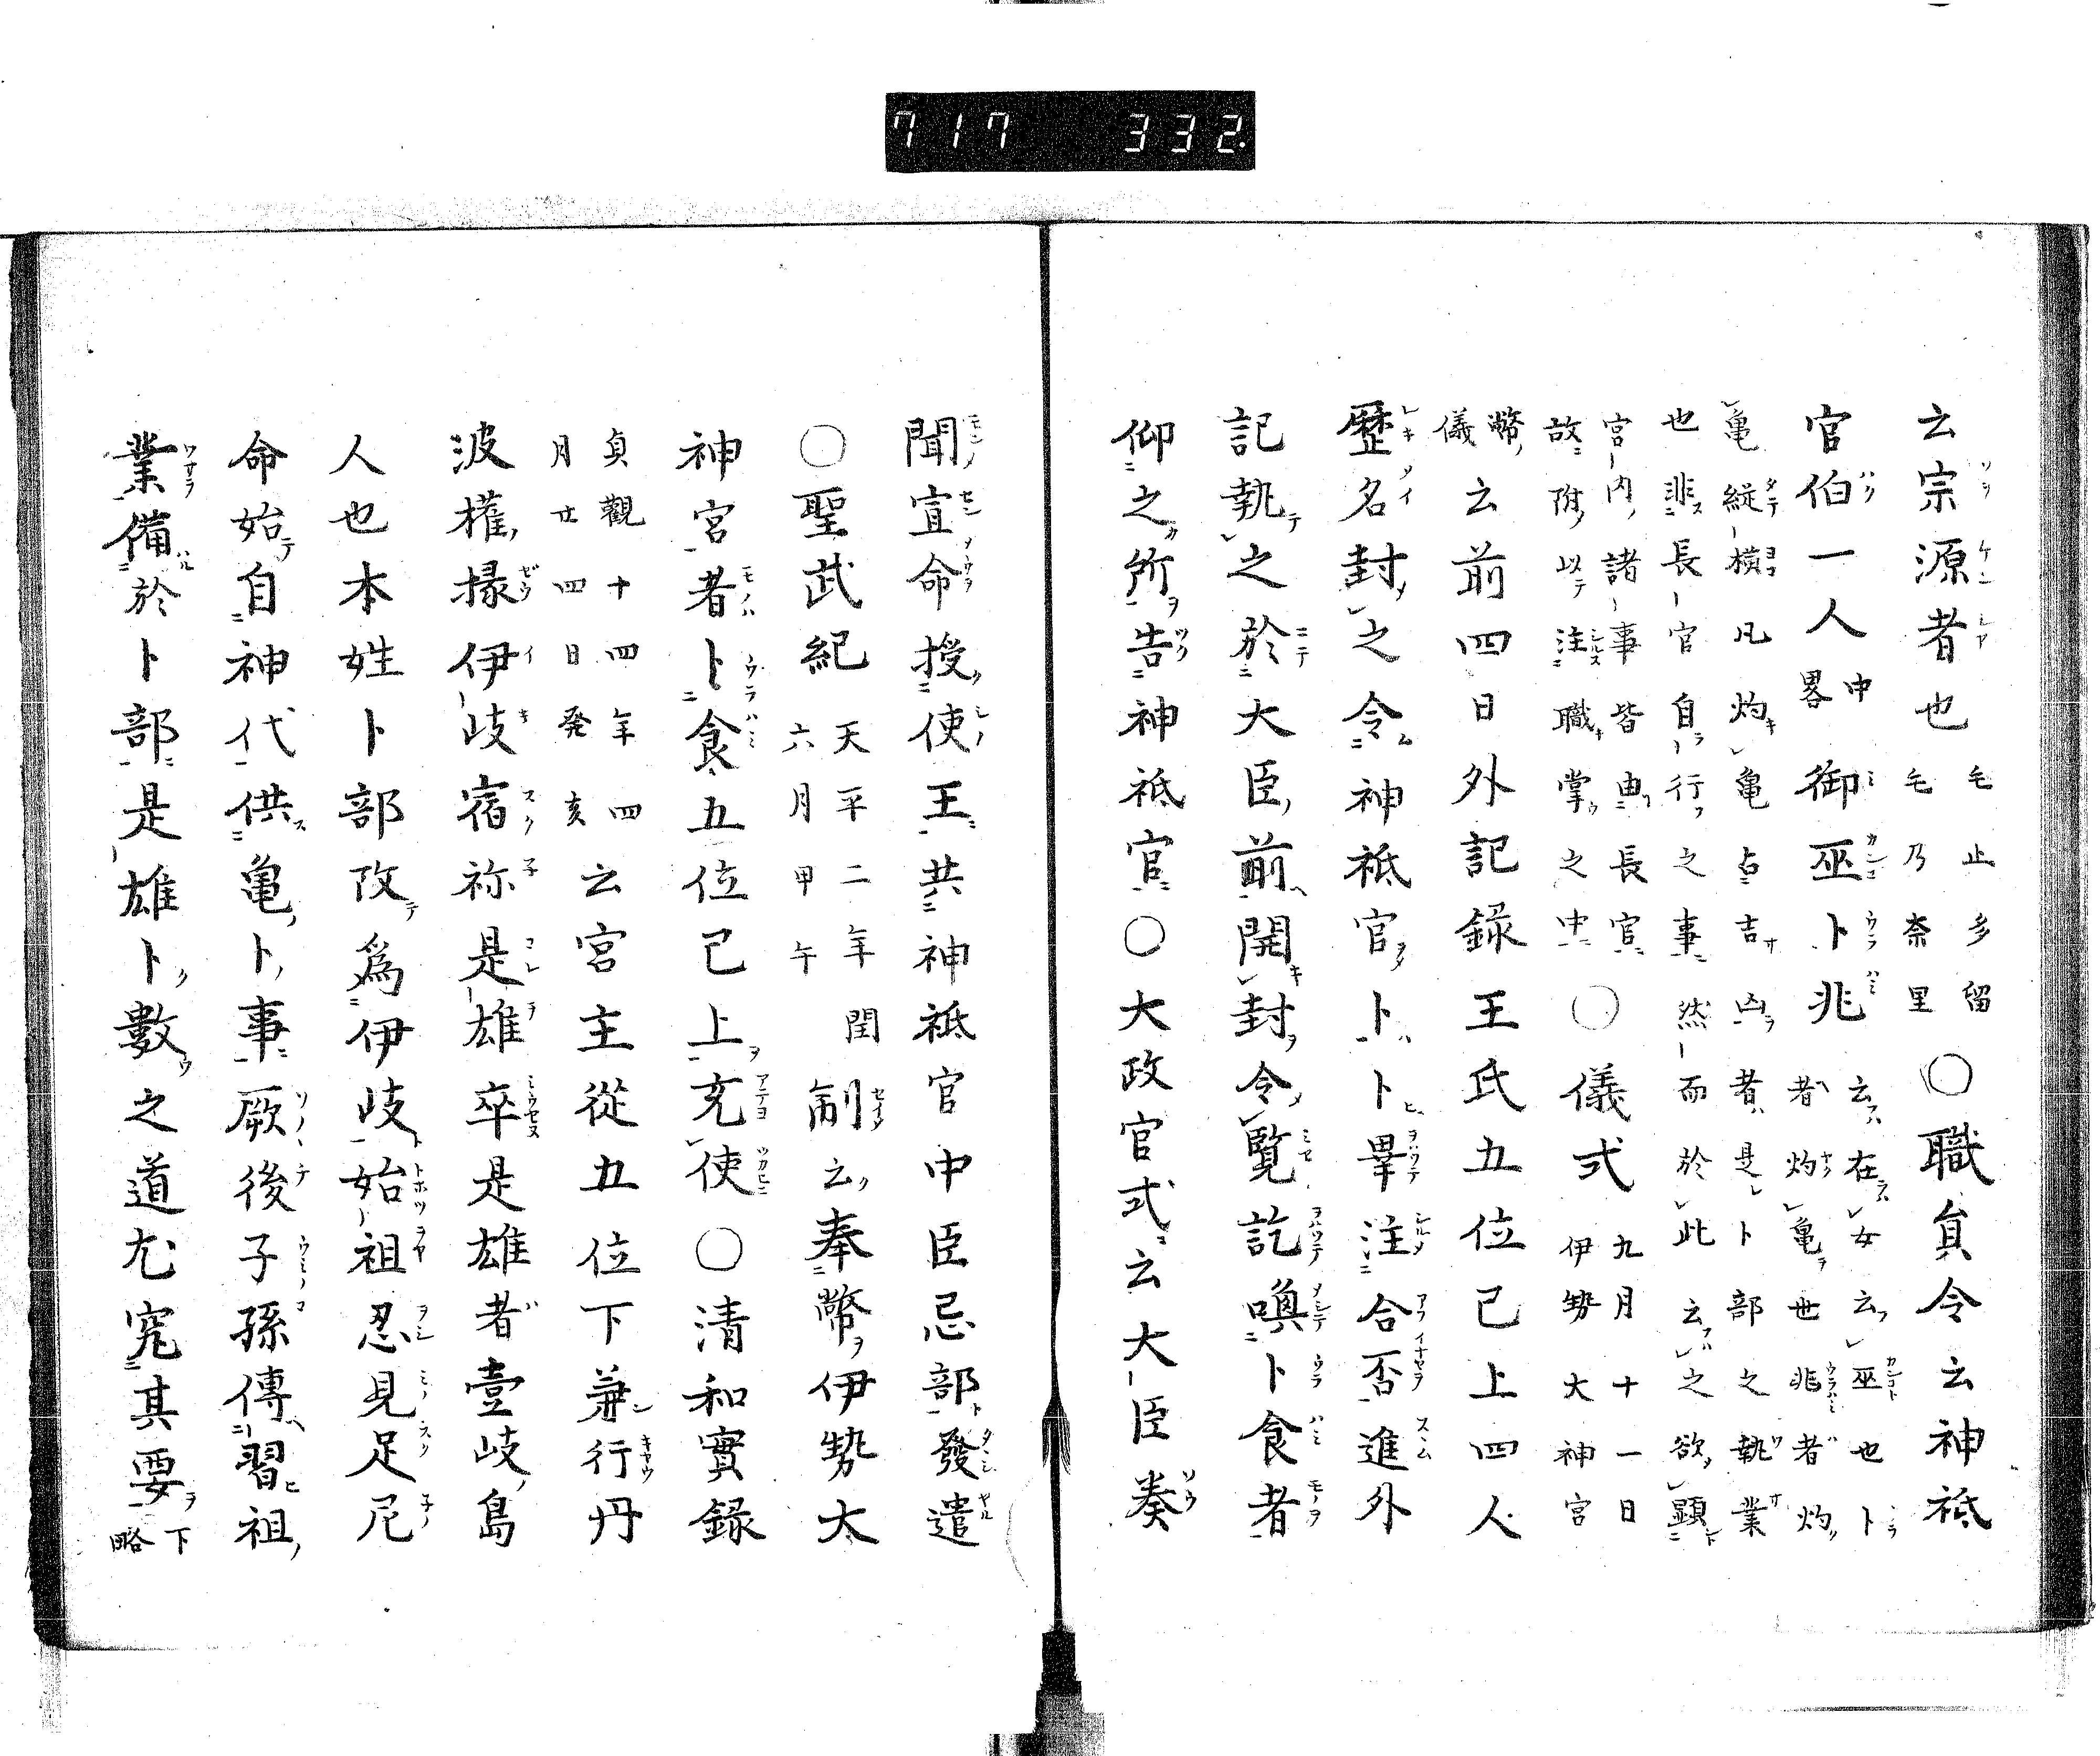 717 332.
云宗源者也 毛止多留毛乃奈里 ○職貟令云神祇
官伯一人 中畧 御巫卜兆 云在女云巫也卜者灼亀世兆者灼
亀縦横凡灼亀占吉凶者是卜部之執業也非長官自行之事然而於此云之欲顕
宮内諸事皆由長官故附以注職掌之中 ○儀式 九月十一日伊勢大神宮
幣儀 云前四日外記録王氏五位已上四人
歴名封之令神祇官卜卜畢注合否進外
記執之於大臣前開封令覧訖喚卜食者
仰之所告神祇官○大政官式云大臣奏
聞宣命授使王共神祇官中臣忌部發遣
○聖武紀 天平二年閏六月甲午 制云奉幣伊勢太
神宮者卜食五位已上充使○清和實録
貞觀十四年四月廿四日癸亥 云宮主從五位下兼行丹
波權掾伊岐宿祢是雄卒是雄者壹岐島
人也本姓卜部改為伊岐始祖忍見足尼
命始自神代供亀卜事厥後子孫傳習祖
業備於卜部是雄卜數之道尤究其要 下略